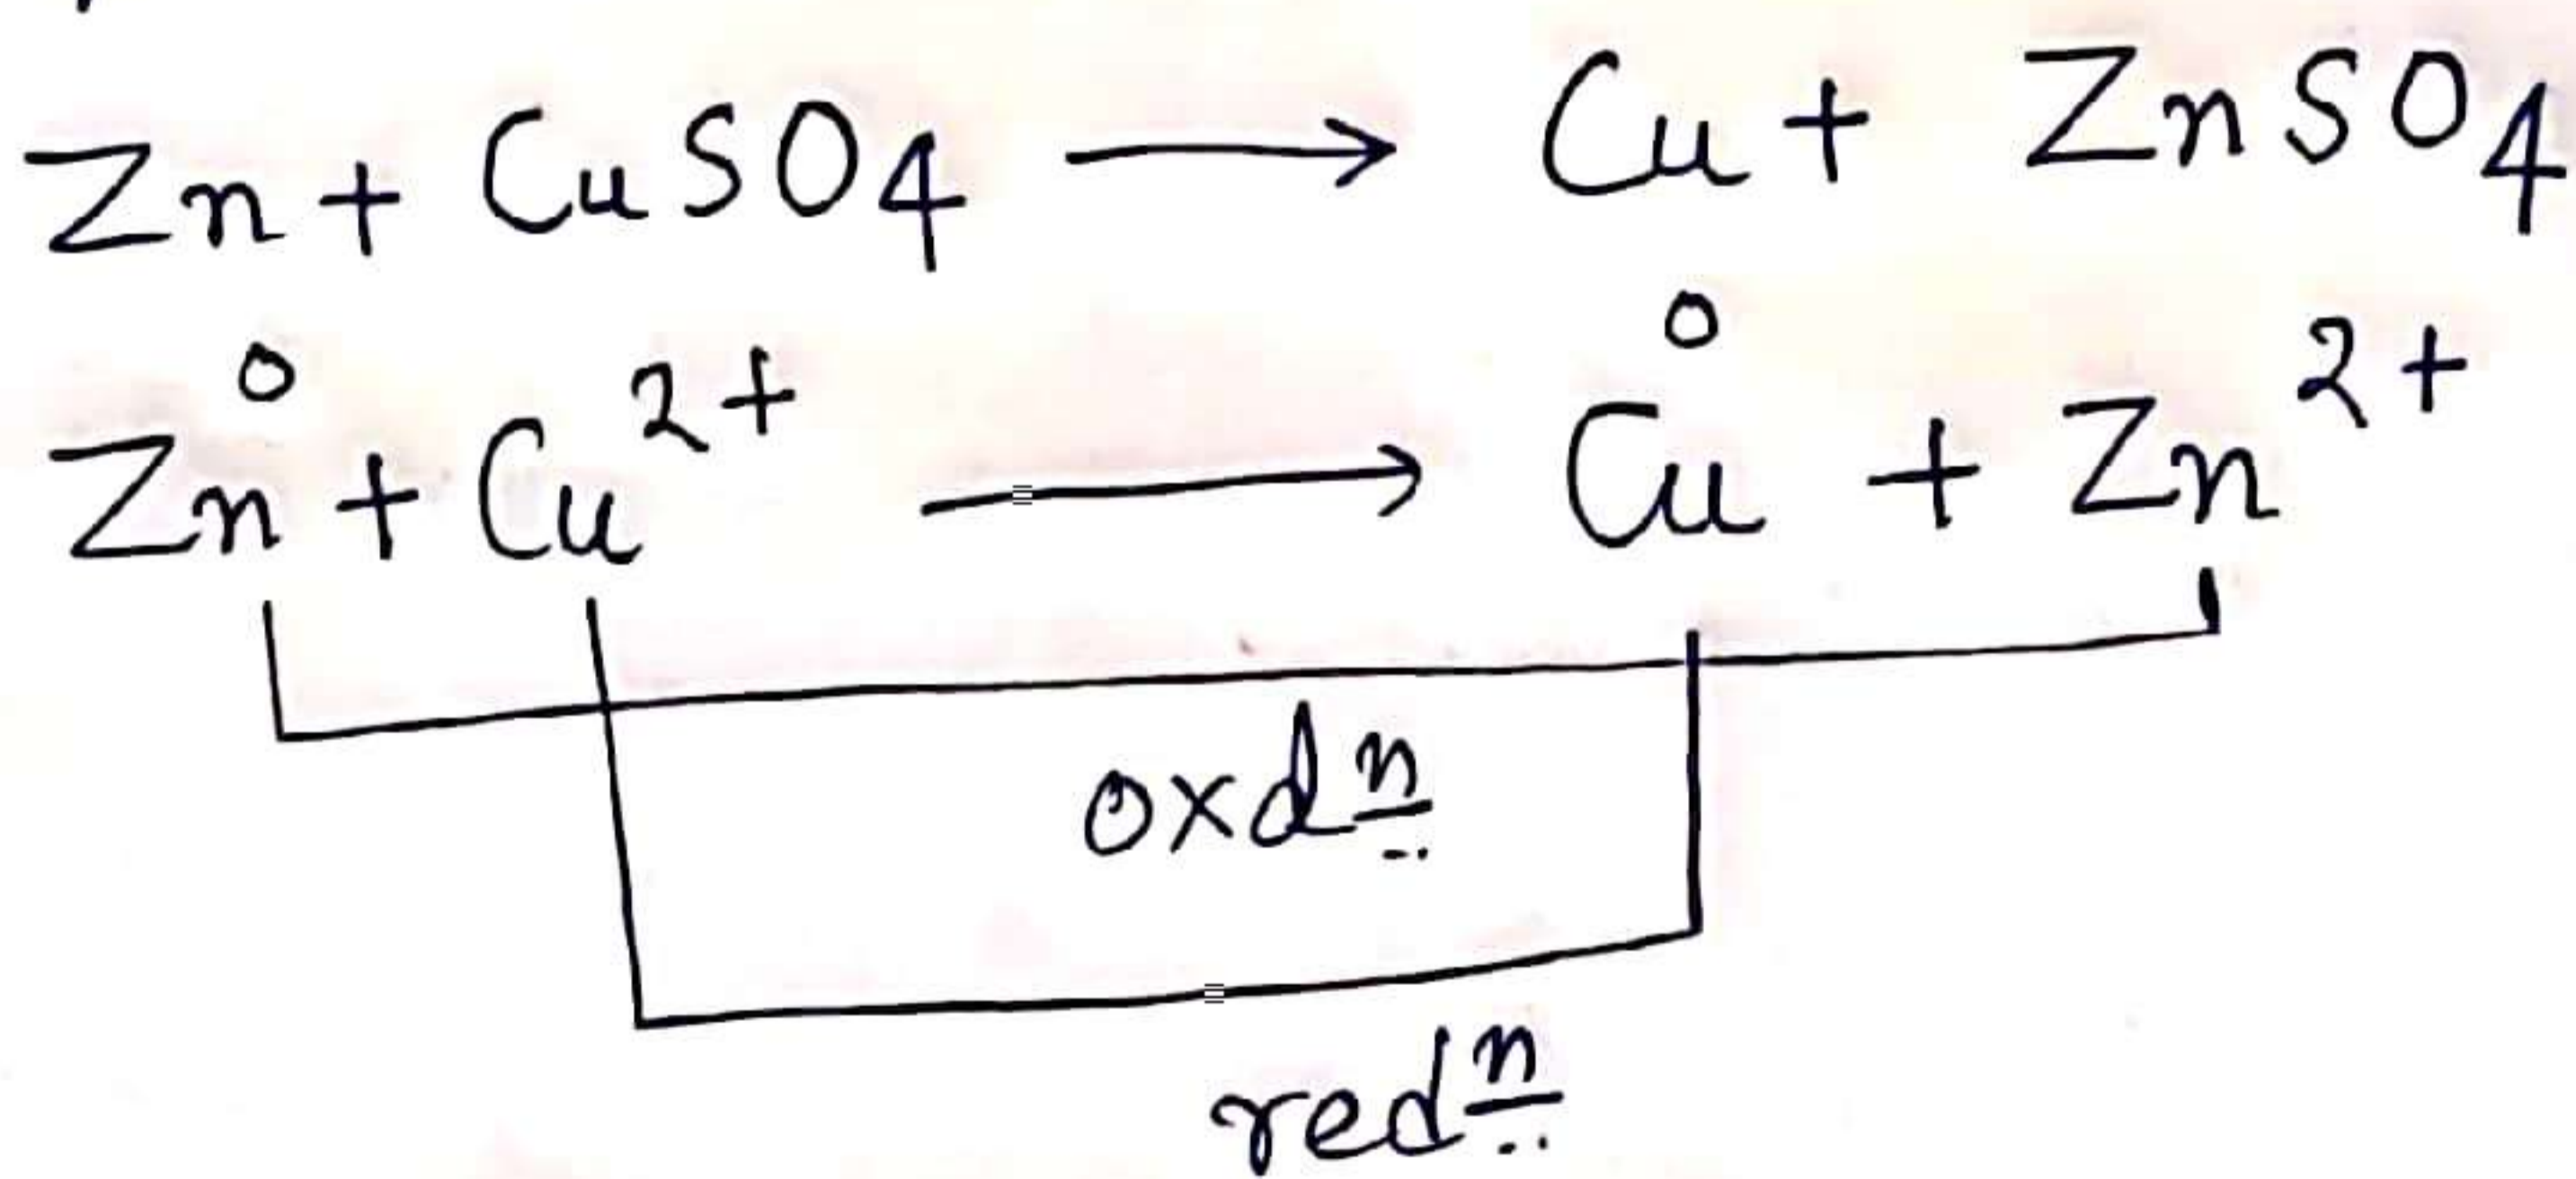 Zn + CuSO4 ⟶ Cu + ZnSO4
Zn⁰ + Cu²⁺ ⟶ Cu⁰ + Zn²⁺
oxdⁿ
redⁿ